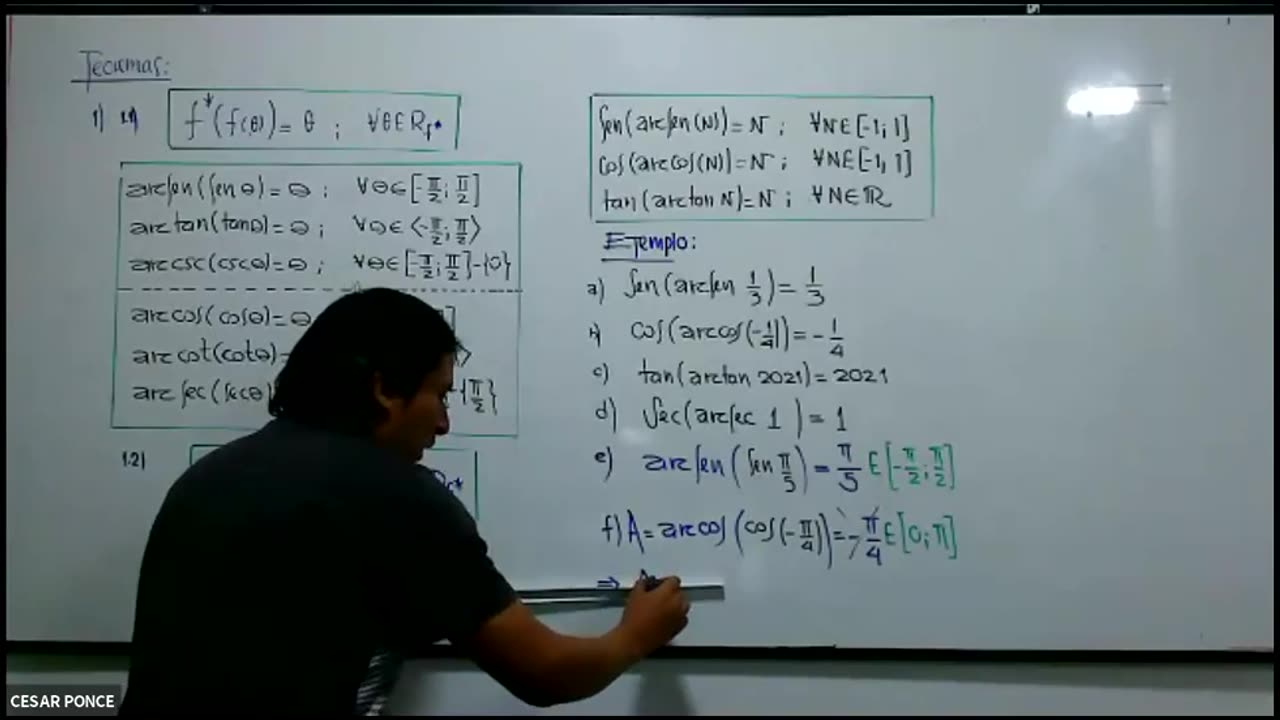 Teoremas:
1) 1.1) f*(f(θ)) = θ ; ∀θ∈R_f*
arcsen(sen θ) = θ ; ∀θ∈[-π/2; π/2]
arctan(tanθ) = θ ; ∀θ∈<-π/2; π/2>
arccsc(cscθ) = θ ; ∀θ∈[-π/2; π/2]-{0}
arccos(cosθ) = θ ]
arccot(cotθ) = >
arcsec(secθ) -{π/2}
1.2) R_f*
sen(arcsen(N)) = N ; ∀N∈[-1; 1]
cos(arccos(N)) = N ; ∀N∈[-1, 1]
tan(arctan N) = N ; ∀N∈ℝ
Ejemplo:
a) sen(arcsen 1/3) = 1/3
b) cos(arccos(-1/4)) = -1/4
c) tan(arctan 2021) = 2021
d) sec(arcsec 1) = 1
e) arcsen(sen π/5) = π/5 ∈[-π/2; π/2]
f) A = arccos(cos(-π/4)) = -π/4 ∈[0; π]
⇒ A
CESAR PONCE